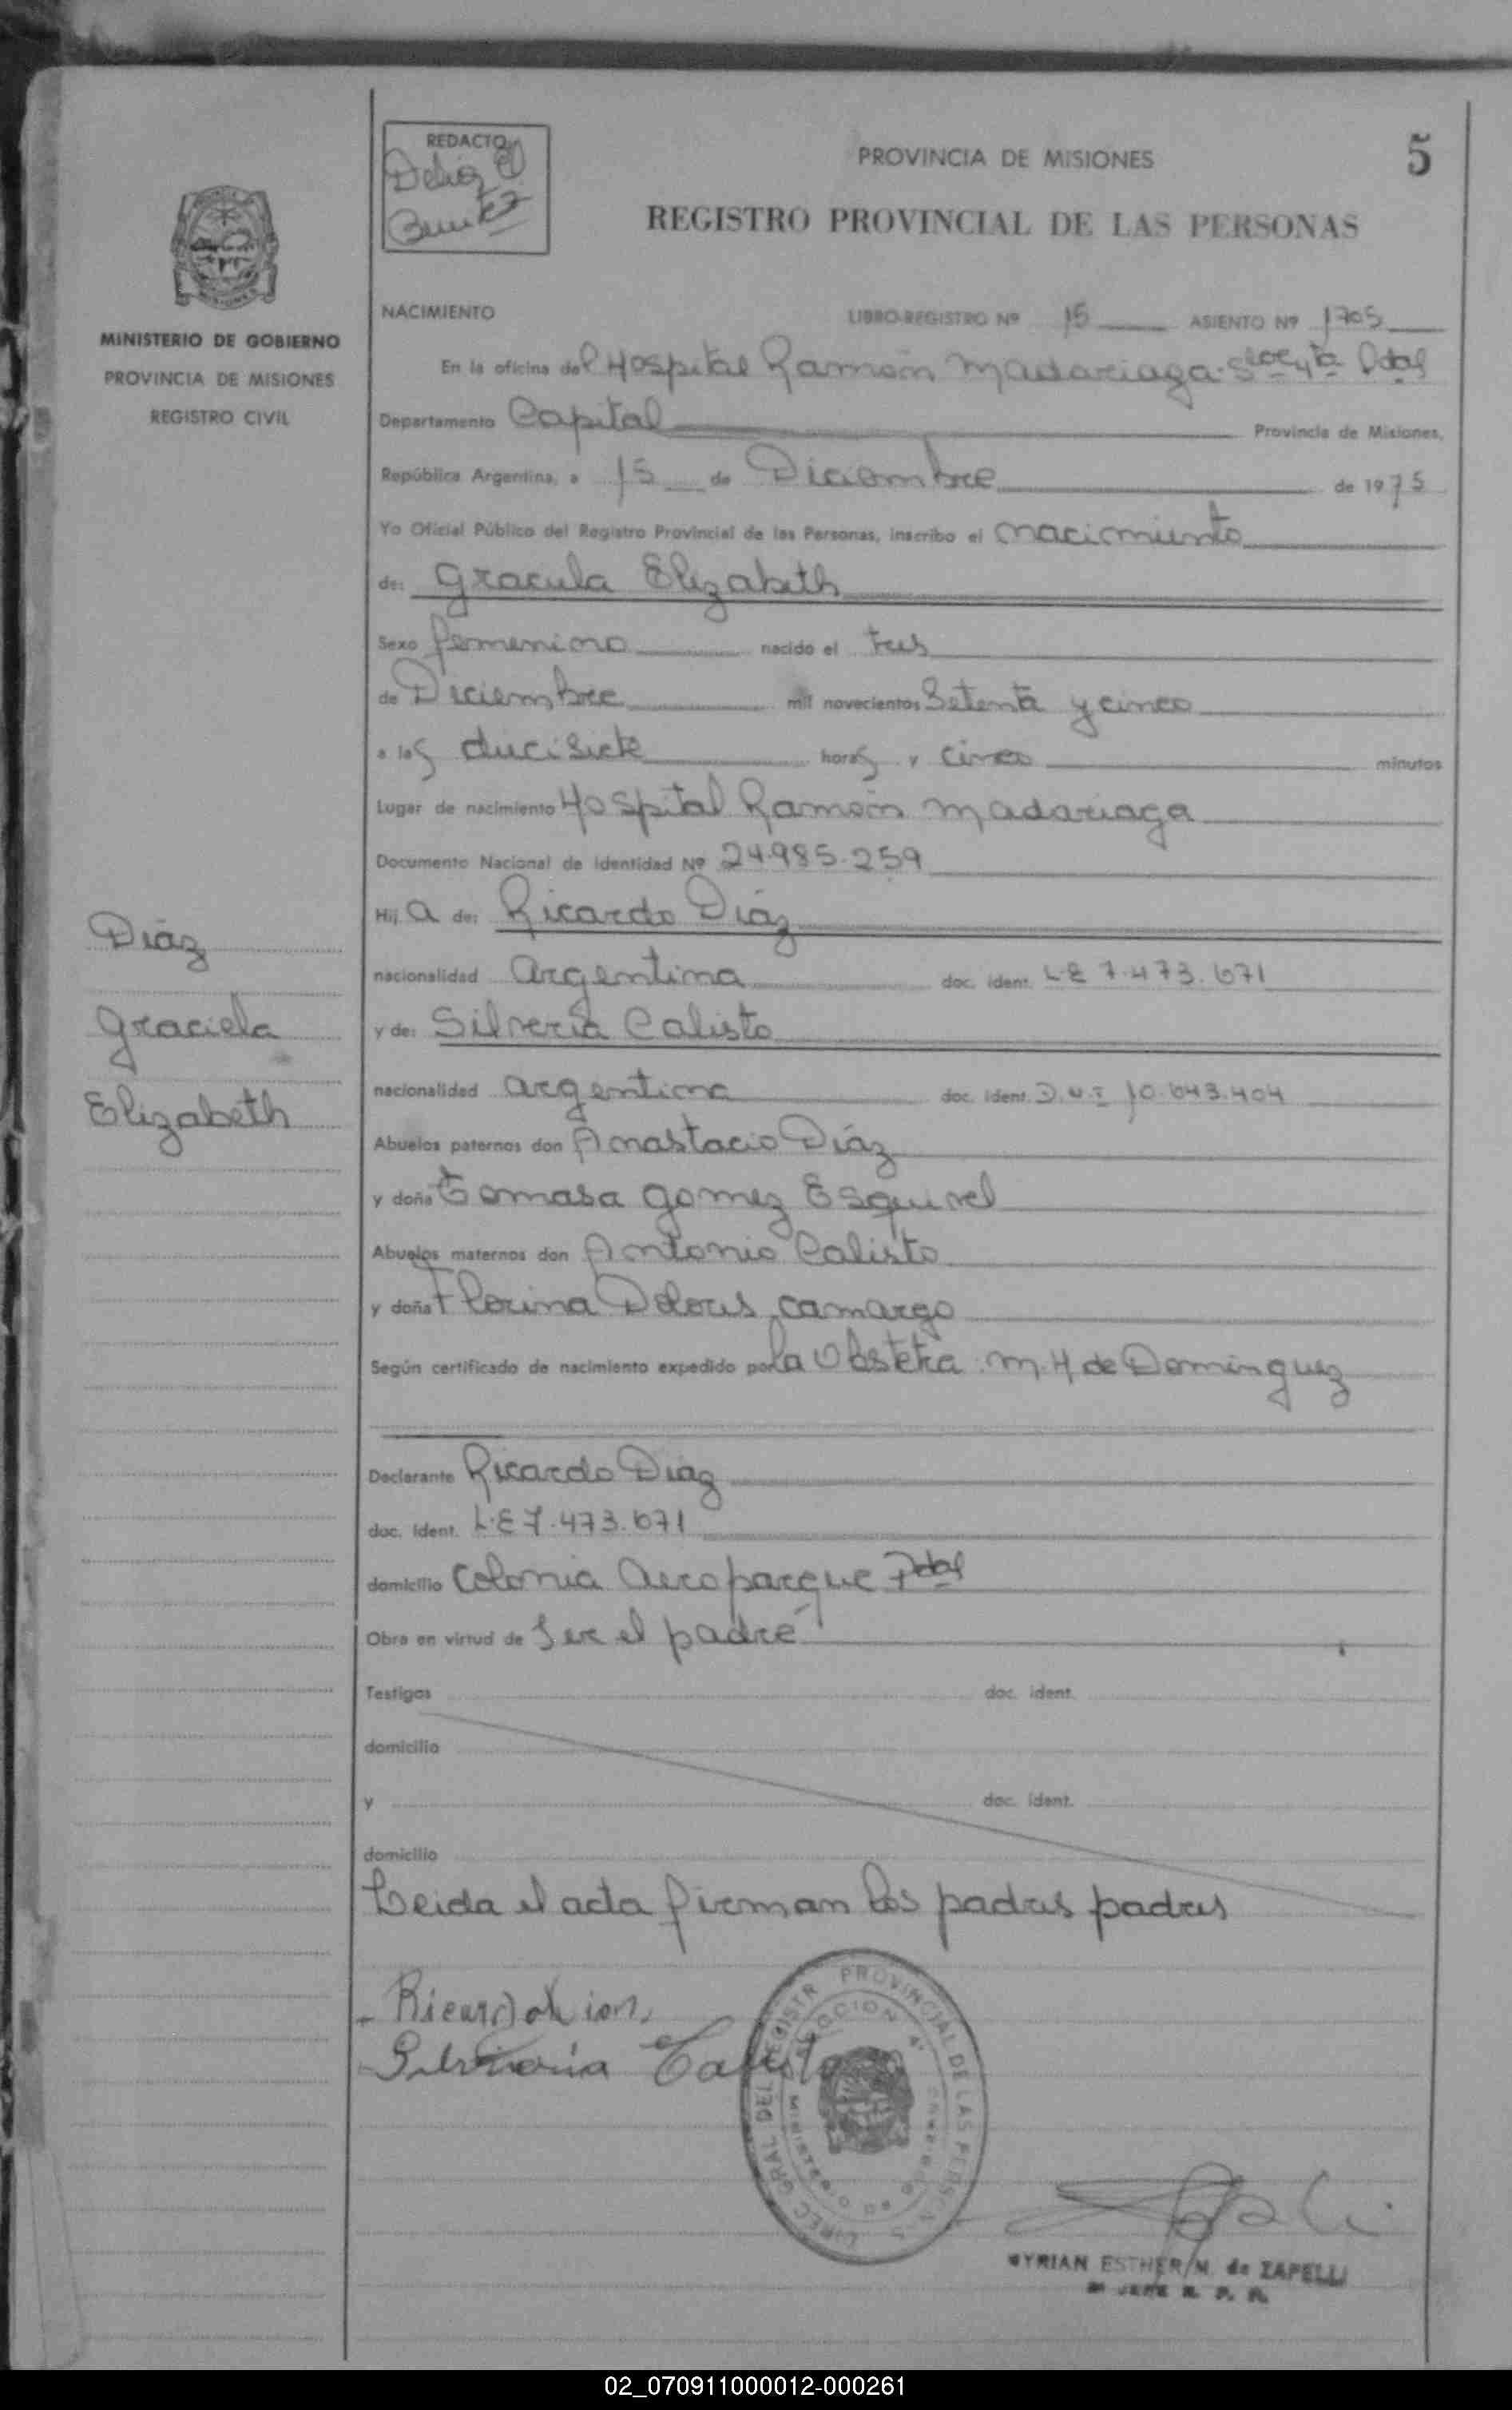 REDACTO
Delia E
Benitez
PROVINCIA DE MISIONES
5
REGISTRO PROVINCIAL DE LAS PERSONAS
MINISTERIO DE GOBIERNO
PROVINCIA DE MISIONES
REGISTRO CIVIL
NACIMIENTO LIBRO-REGISTRO Nº 15 ASIENTO Nº 1705
En la oficina del Hospital Ramón Madariaga. 4ta Pdas
Departamento Capital Provincia de Misiones,
República Argentina, a 15 de Diciembre de 1975
Yo Oficial Público del Registro Provincial de las Personas, inscribo el nacimiento
de: Graciela Elizabeth
Sexo femenino nacido el tres
de Diciembre mil novecientos Setenta y cinco
a las diecisiete horas y cinco minutos
Lugar de nacimiento Hospital Ramón Madariaga
Documento Nacional de Identidad Nº 24.985.259
Hij a de: Ricardo Díaz
nacionalidad Argentina doc. ident. L-E 7.473.671
y de: Silveria Calisto
nacionalidad argentina doc. ident. D.N.I 10.643.404
Abuelos paternos don Anastacio Díaz
y doña Tomasa Gomez Esquivel
Abuelos maternos don Antonio Calisto
y doña Florina Dolores Camargo
Según certificado de nacimiento expedido por la Obstetra. M.H de Dominguez
Declarante Ricardo Diaz
doc. ident. L.E 7.473.671
domicilio Colonia Aeroparque Pdas
Obra en virtud de Ser el padre
Testigos doc. ident.
domicilio
y doc. ident.
domicilio
Leida el acta firman los padres padres
Díaz
Graciela
Elizabeth
Silveria Calisto
DIREC. GRAL. DEL REGISTR PROVINCIAL DE LAS PERSONAS
SECCION 4ª
MINISTERIO DE GOBIERNO
MYRIAN ESTHER M. de ZAPELLI
JEFE R. P. P.
02_070911000012-000261